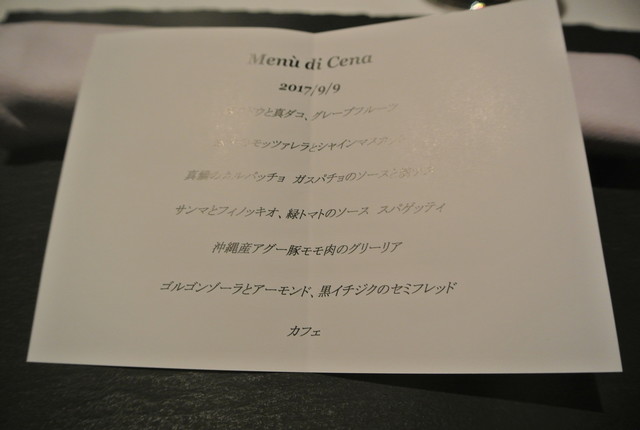 Menù di Cena
2017/9/9
と真ダコ、グレープフルーツ
モッツァレラとシャインマスカット
真鯛のカルパッチョ ガスパチョのソース
サンマとフィノッキオ、緑トマトのソース スパゲッティ
沖縄産アグー豚モモ肉のグリーリア
ゴルゴンゾーラとアーモンド、黒イチジクのセミフレッド
カフェ